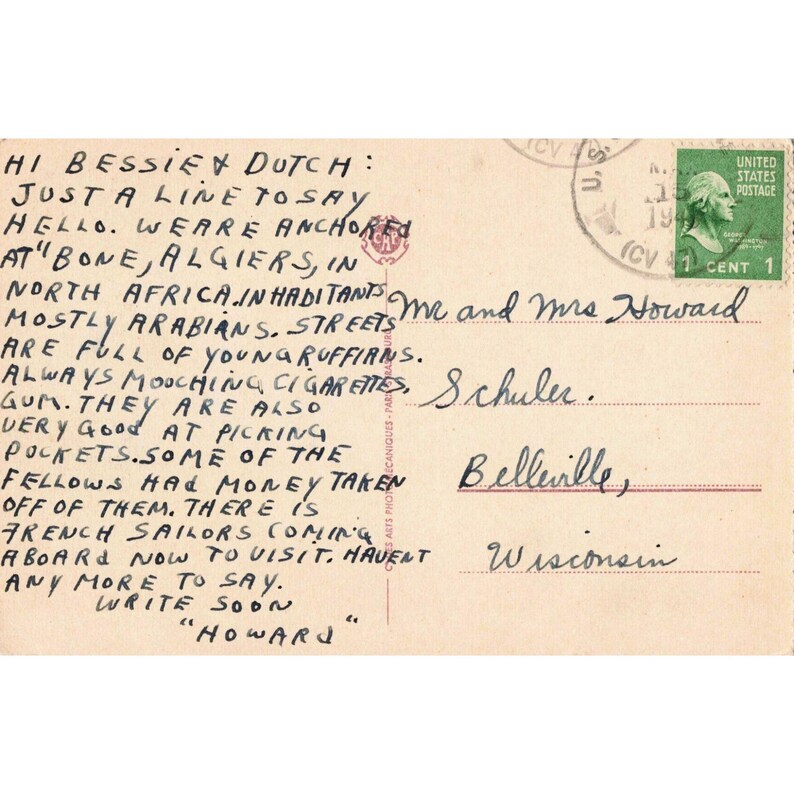 HI BESSIE & DUTCH:
JUST A LINE TO SAY
HELLO. WE ARE ANCHORED
AT "BONE, ALGIERS, IN
NORTH AFRICA. INHADITANTS
MOSTLY ARABIANS. STREETS
ARE FULL OF YOUNG RUFFIANS.
ALWAYS MOOCHING CIGARETTES,
GUM. THEY ARE ALSO
VERY GOOD AT PICKING
POCKETS. SOME OF THE
FELLOWS HAD MONEY TAKEN
OFF OF THEM. THERE IS
FRENCH SAILORS COMING
ABOARD NOW TO VISIT. HAVENT
ANY MORE TO SAY.
WRITE SOON
"HOWARD"
CAP
ARTS
U.S.
15
(CV
(CV
UNITED
STATES
POSTAGE
GEORGE
WASHINGTON
1 CENT 1
Mr and Mrs Howard
Schuler.
Belleville,
Wisconsin